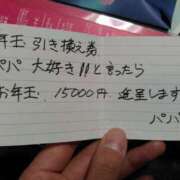 年玉 引き換え券
パパ 大好き!!と言ったら
お年玉、15000円 進呈します
パパ